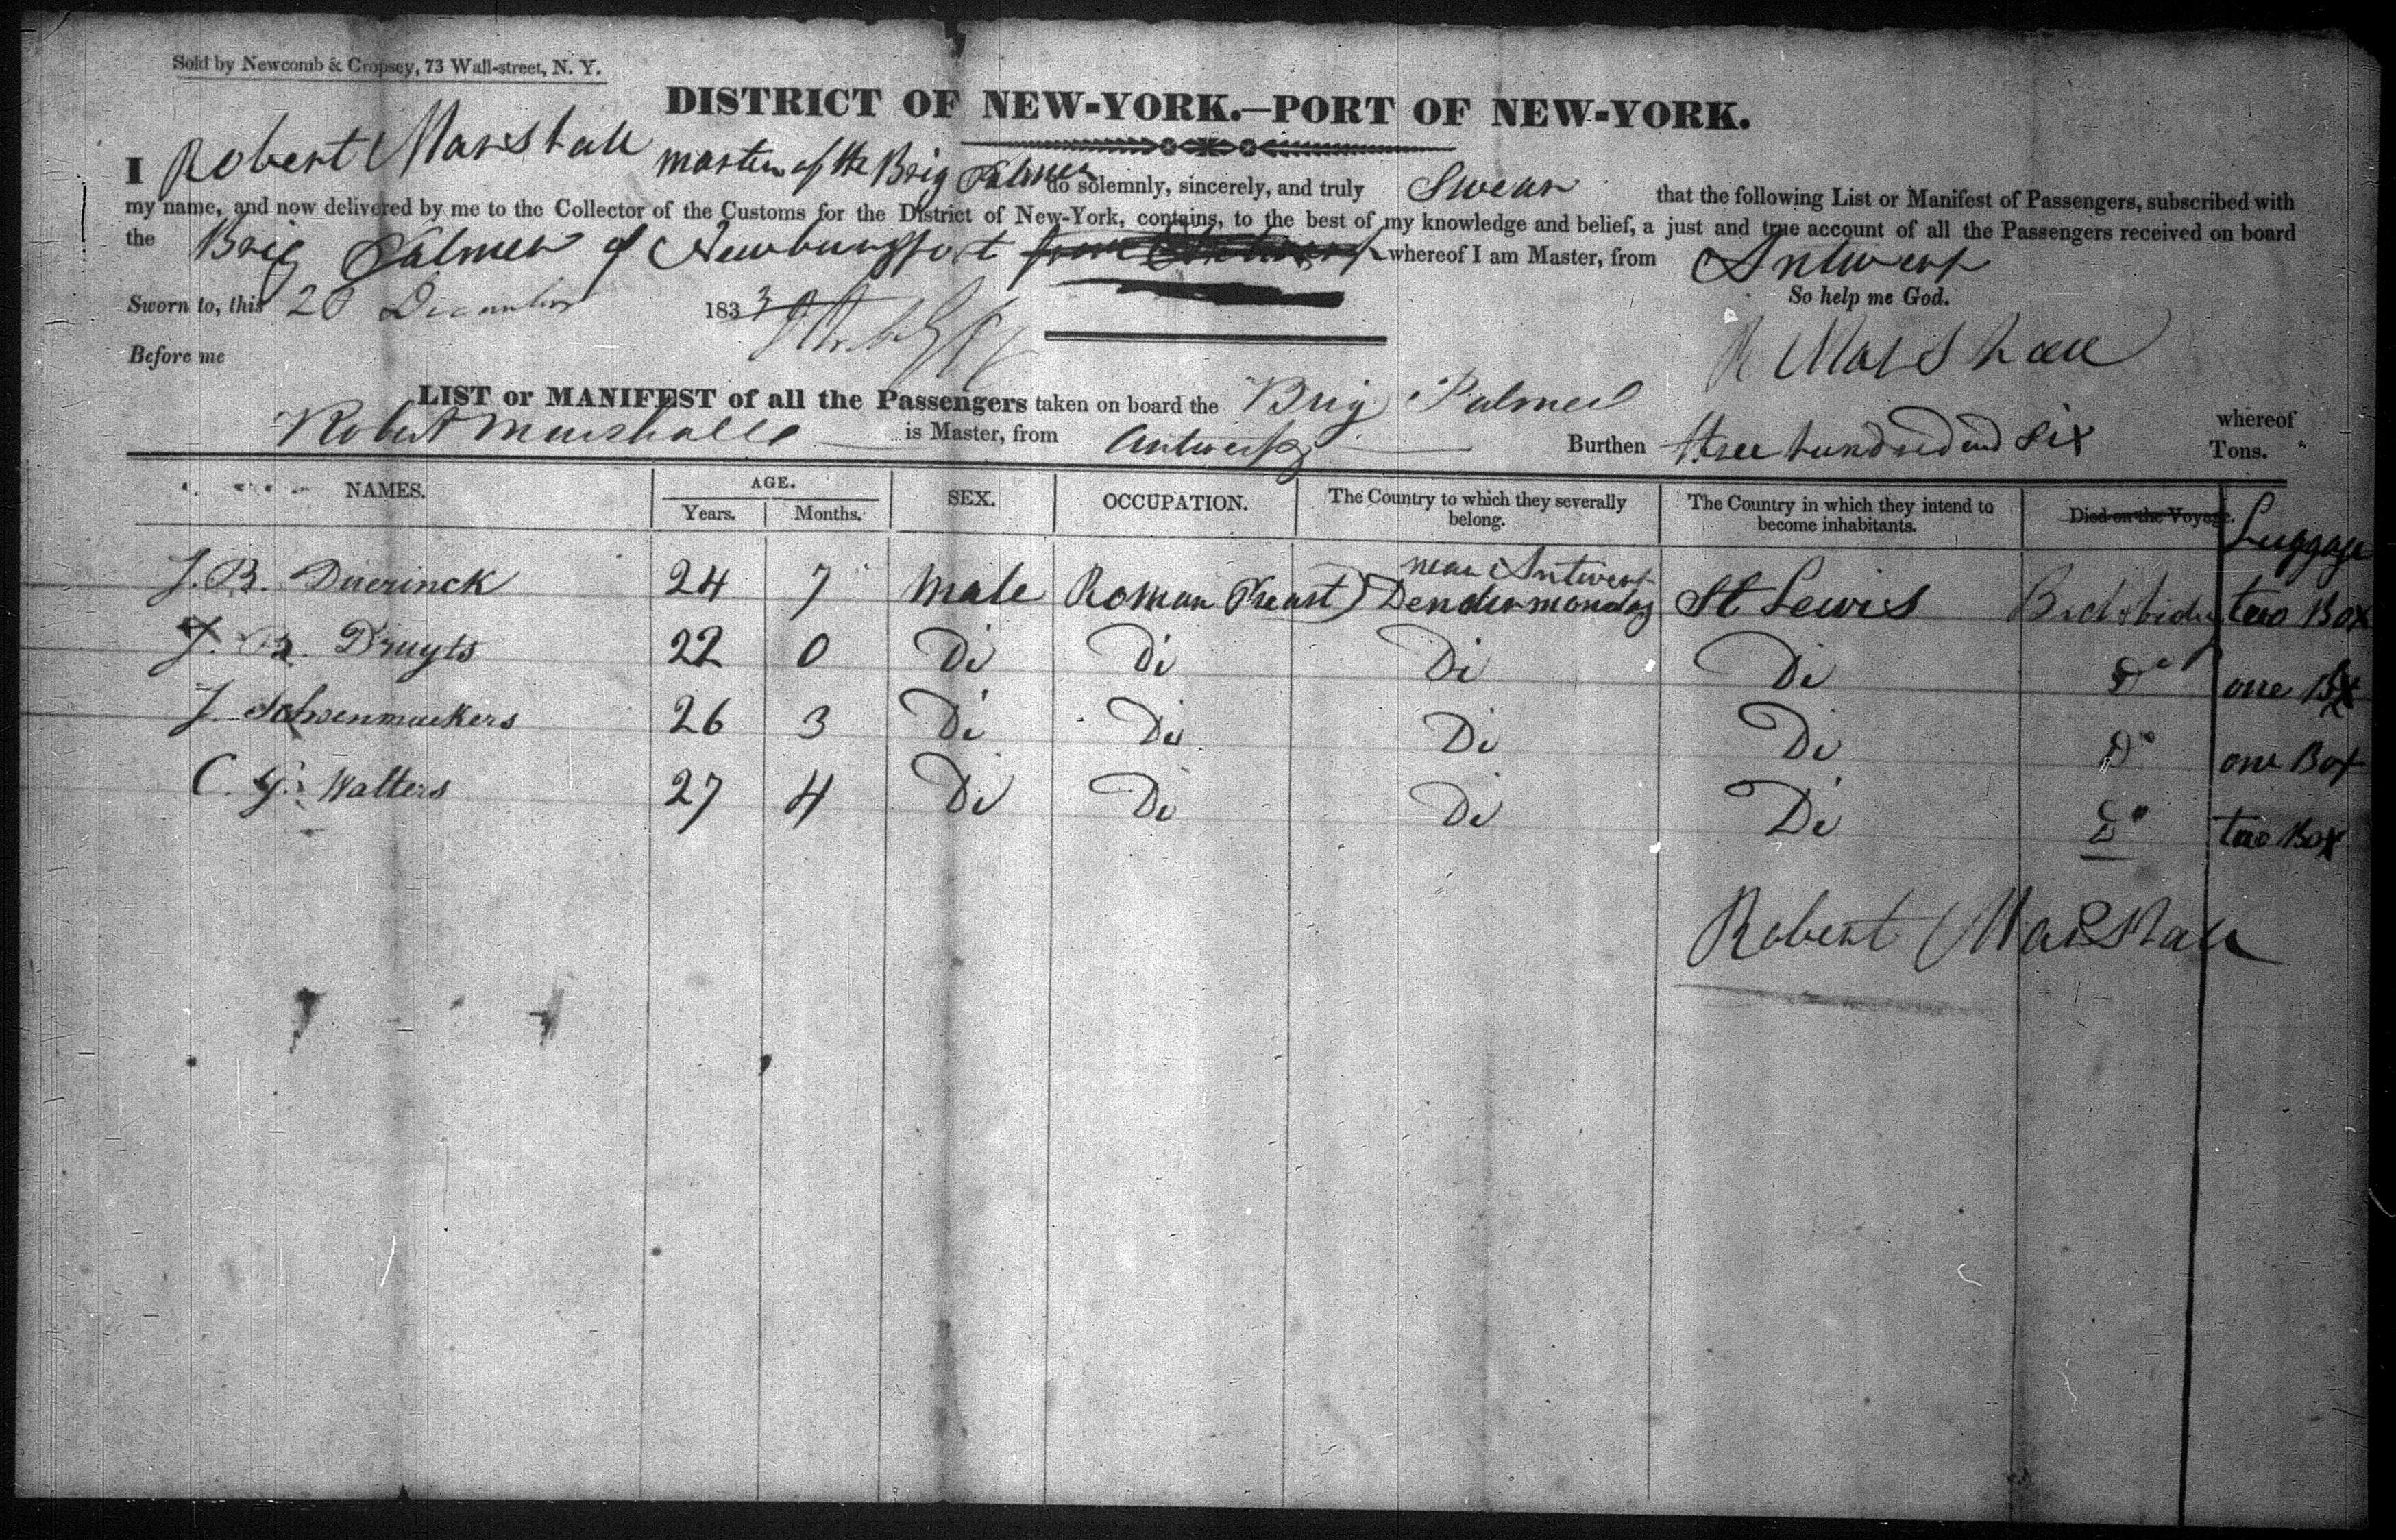 Sold by Newcomb & Cropsey, 73 Wall-street, N. Y.
DISTRICT OF NEW-YORK.—PORT OF NEW-YORK.
I Robert Marshall master of the Brig Palmer do solemnly, sincerely, and truly Swear that the following List or Manifest of Passengers, subscribed with
my name, and now delivered by me to the Collector of the Customs for the District of New-York, contains, to the best of my knowledge and belief, a just and true account of all the Passengers received on board
the Brig Palmer of Newburyport from Antwerp whereof I am Master, from Antwerp
So help me God.
Sworn to, this 20 December 1833
Before me
R Marshall
LIST or MANIFEST of all the Passengers taken on board the Brig Palmer whereof
Robert Marshall is Master, from Antwerp Burthen three hundred and six Tons.
NAMES. AGE. Years. Months. SEX. OCCUPATION. The Country to which they severally belong. The Country in which they intend to become inhabitants. Died on the Voyage. Luggage
J. B. Duerinck 24 7 Male Roman Preast near Antwerp Dendermonday St Lewis two Box
J. B. Druyts 22 0 Di Di Di Di Do one Box
J. Schoenmaekers 26 3 Di Di Di Di Do one Box
C. G. Walters 27 4 Di Di Di Di Do two Box
Robert Marshall